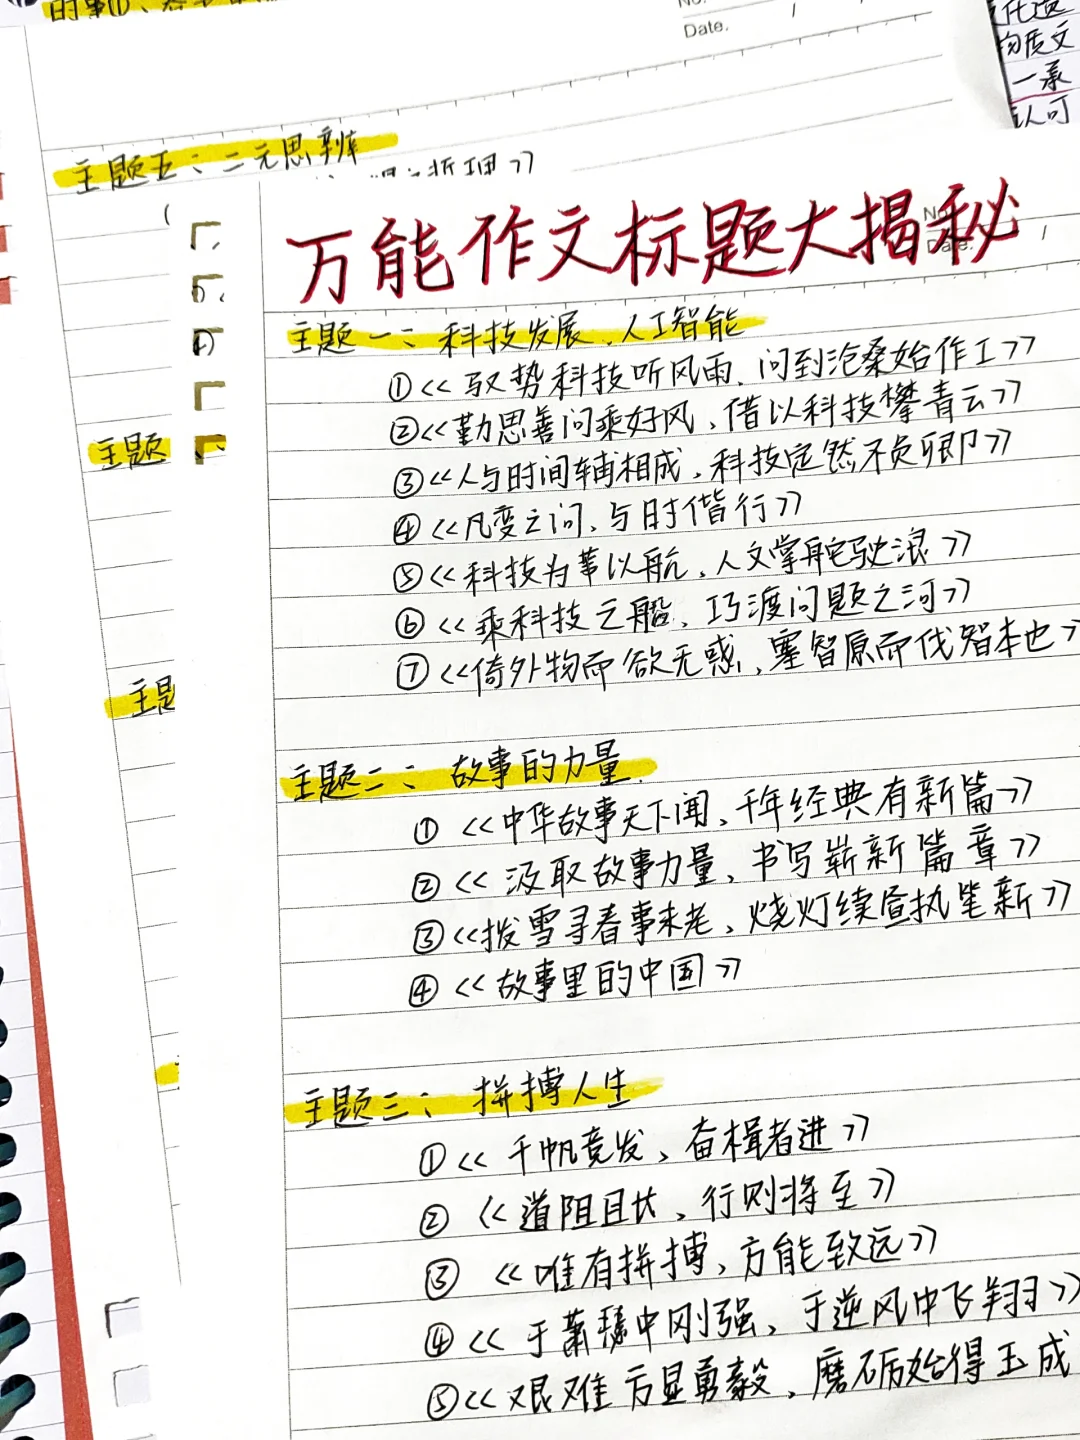 No.
Date.
物质文
一承
认可
主题五：二元思辨
主题
主题
万能作文标题大揭秘
主题一：科技发展、人工智能
①<<驭势科技听风雨、问到沧桑始作工>>
②<<勤思善问乘好风、借以科技攀青云>>
③<<人与时间辅相成，科技定然不负卿>>
④<<凡变之问、与时偕行>>
⑤<<科技为苇以航、人文掌舵驶浪>>
⑥<<乘科技之船、巧渡问题之河>>
⑦<<倚外物而欲无惑、塞智原而伐智本也>>
主题二：故事的力量
①<<中华故事天下闻、千年经典有新篇>>
②<<汲取故事力量，书写崭新篇章>>
③<<拨雪寻春事未老，烧灯续昼执笔新>>
④<<故事里的中国>>
主题三：拼搏人生
①<<千帆竞发、奋楫者进>>
②<<道阻且长，行则将至>>
③<<唯有拼搏，方能致远>>
④<<于萧瑟中刚强，于逆风中飞翔>>
⑤<<艰难方显勇毅，磨砺始得玉成